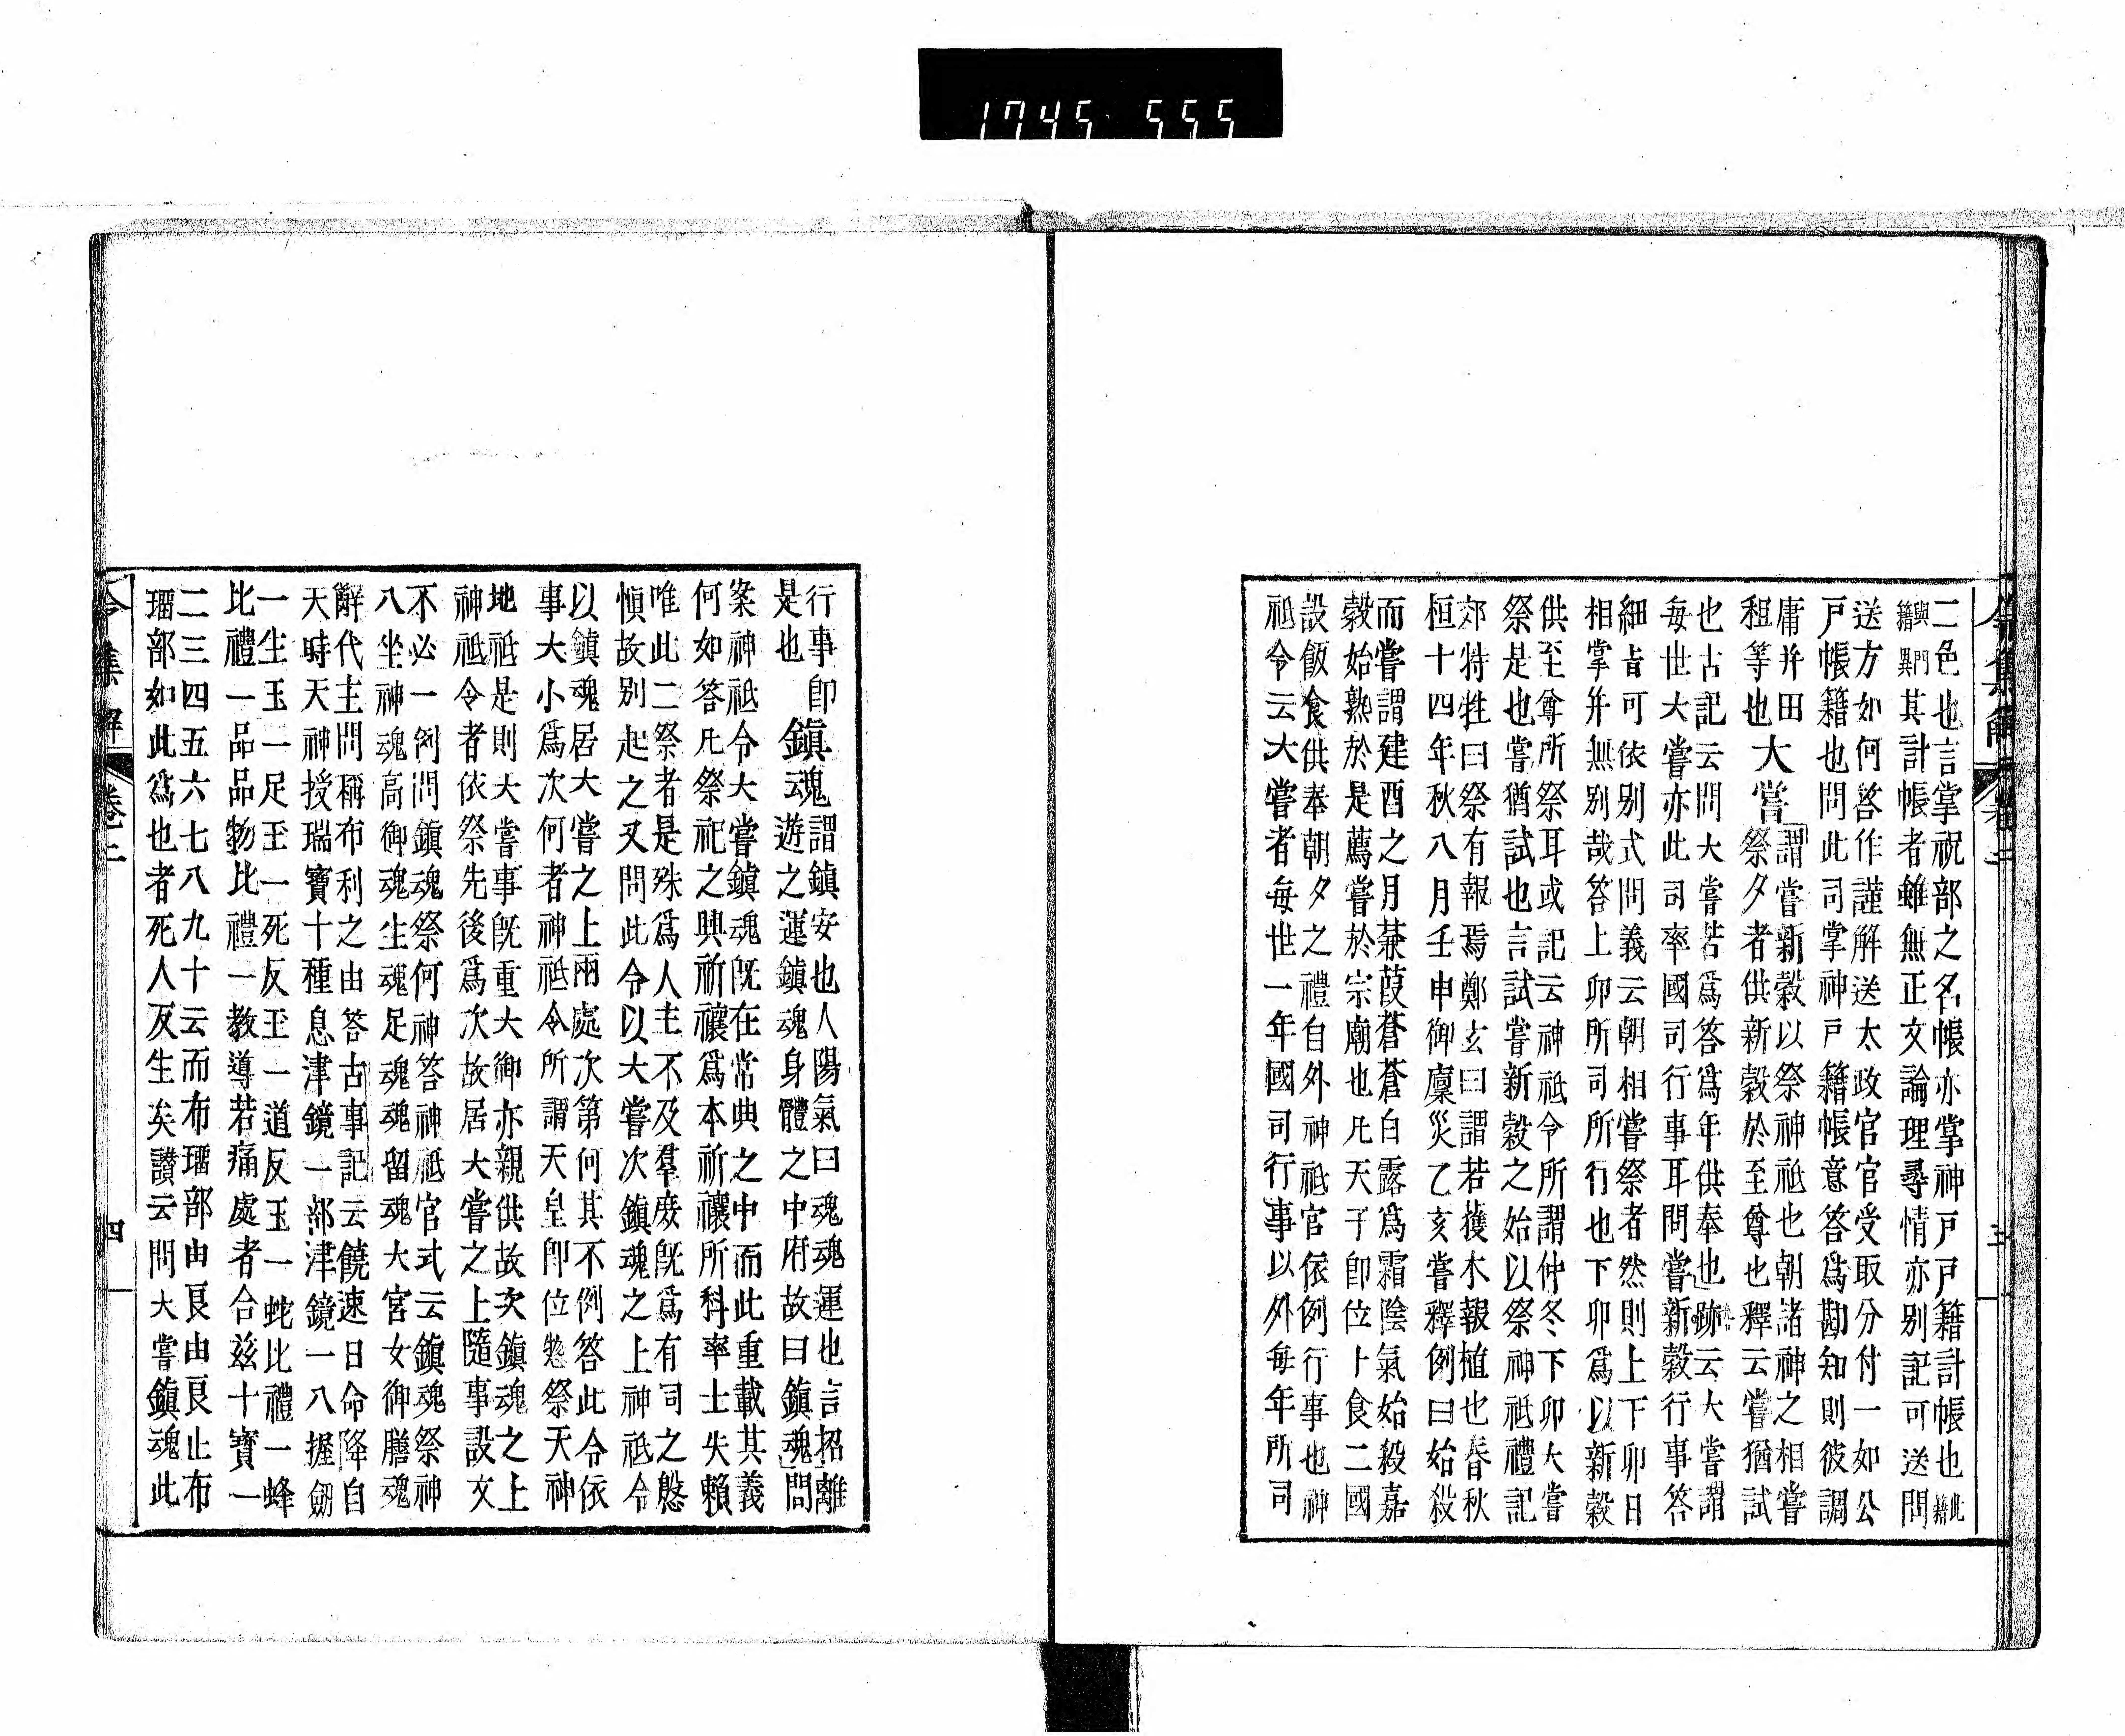 1745 555
二色也言掌祝部之名帳亦掌神戸戸籍計帳也此籍
與門籍異其計帳者雖無正文論理尋情亦別記可送問
送方如何答作謹解送太政官官受取分付一如公
戸帳籍也問此司掌神戸籍帳意答爲勘知則彼調
庸并田
租等也
大嘗
謂嘗新穀以祭神祇也朝諸神之相嘗
祭夕者供新穀於至尊也釋云嘗猶試
也古記云問大嘗若爲答爲年供奉也跡云大嘗謂
毎世大嘗亦此司率國司行事耳問嘗新穀行事答
細旨可依別式問義云朝相嘗祭者然則上下卯日
相掌并無別哉答上卯所司所行也下卯爲以新穀
供至尊所祭耳或記云神祇令所謂仲冬下卯大嘗
祭是也嘗猶試也言試嘗新穀之始以祭神祇禮記
郊特牲曰祭有報焉鄭玄曰謂若獲木報植也春秋
桓十四年秋八月壬申御廩災乙亥嘗釋例曰始殺
而嘗謂建酉之月蒹葭蒼蒼白露爲霜陰氣始殺嘉
穀始熟於是薦嘗於宗廟也凡天子即位卜食二國
設飯食供奉朝夕之禮自外神祇官依例行事也神
祇令云大嘗者毎世一年國司行事以外毎年所司
令集解 卷二 三
行事即
是也
鎮魂
謂鎮安也人陽氣曰魂魂運也言招離
遊之運鎮魂身體之中府故曰鎮魂問
案神祇令大嘗鎮魂既在常典之中而此重載其義
何如答凡祭祀之興祈禳爲本祈禳所科率士失賴
唯此二祭者是殊爲人主不及羣庶既爲有司之慇
愼故別起之又問此令以大嘗次鎮魂之上神祇令
以鎮魂居大嘗之上兩處次第何其不例答此令依
事大小爲次何者神祇令所謂天皇即位惣祭天神
地祇是則大嘗事既重大御亦親供故次鎮魂之上
神祇令者依祭先後爲次故居大嘗之上隨事設文
不必一例問鎮魂祭何神答神祇官式云鎮魂祭神
八坐神魂高御魂生魂足魂魂留魂大宮女御膳魂
辭代主問稱布利之由答古事記云饒速日命降自
天時天神授瑞寶十種息津鏡一部津鏡一八握劔
一生玉一足玉一死反玉一道反玉一蛇比禮一蜂
比禮一品品物比禮一教導若痛處者合茲十寶一
二三四五六七八九十云而布瑠部由良由良止布
瑠部如此爲也者死人反生矣讃云問大嘗鎮魂此
令集解 卷二 四